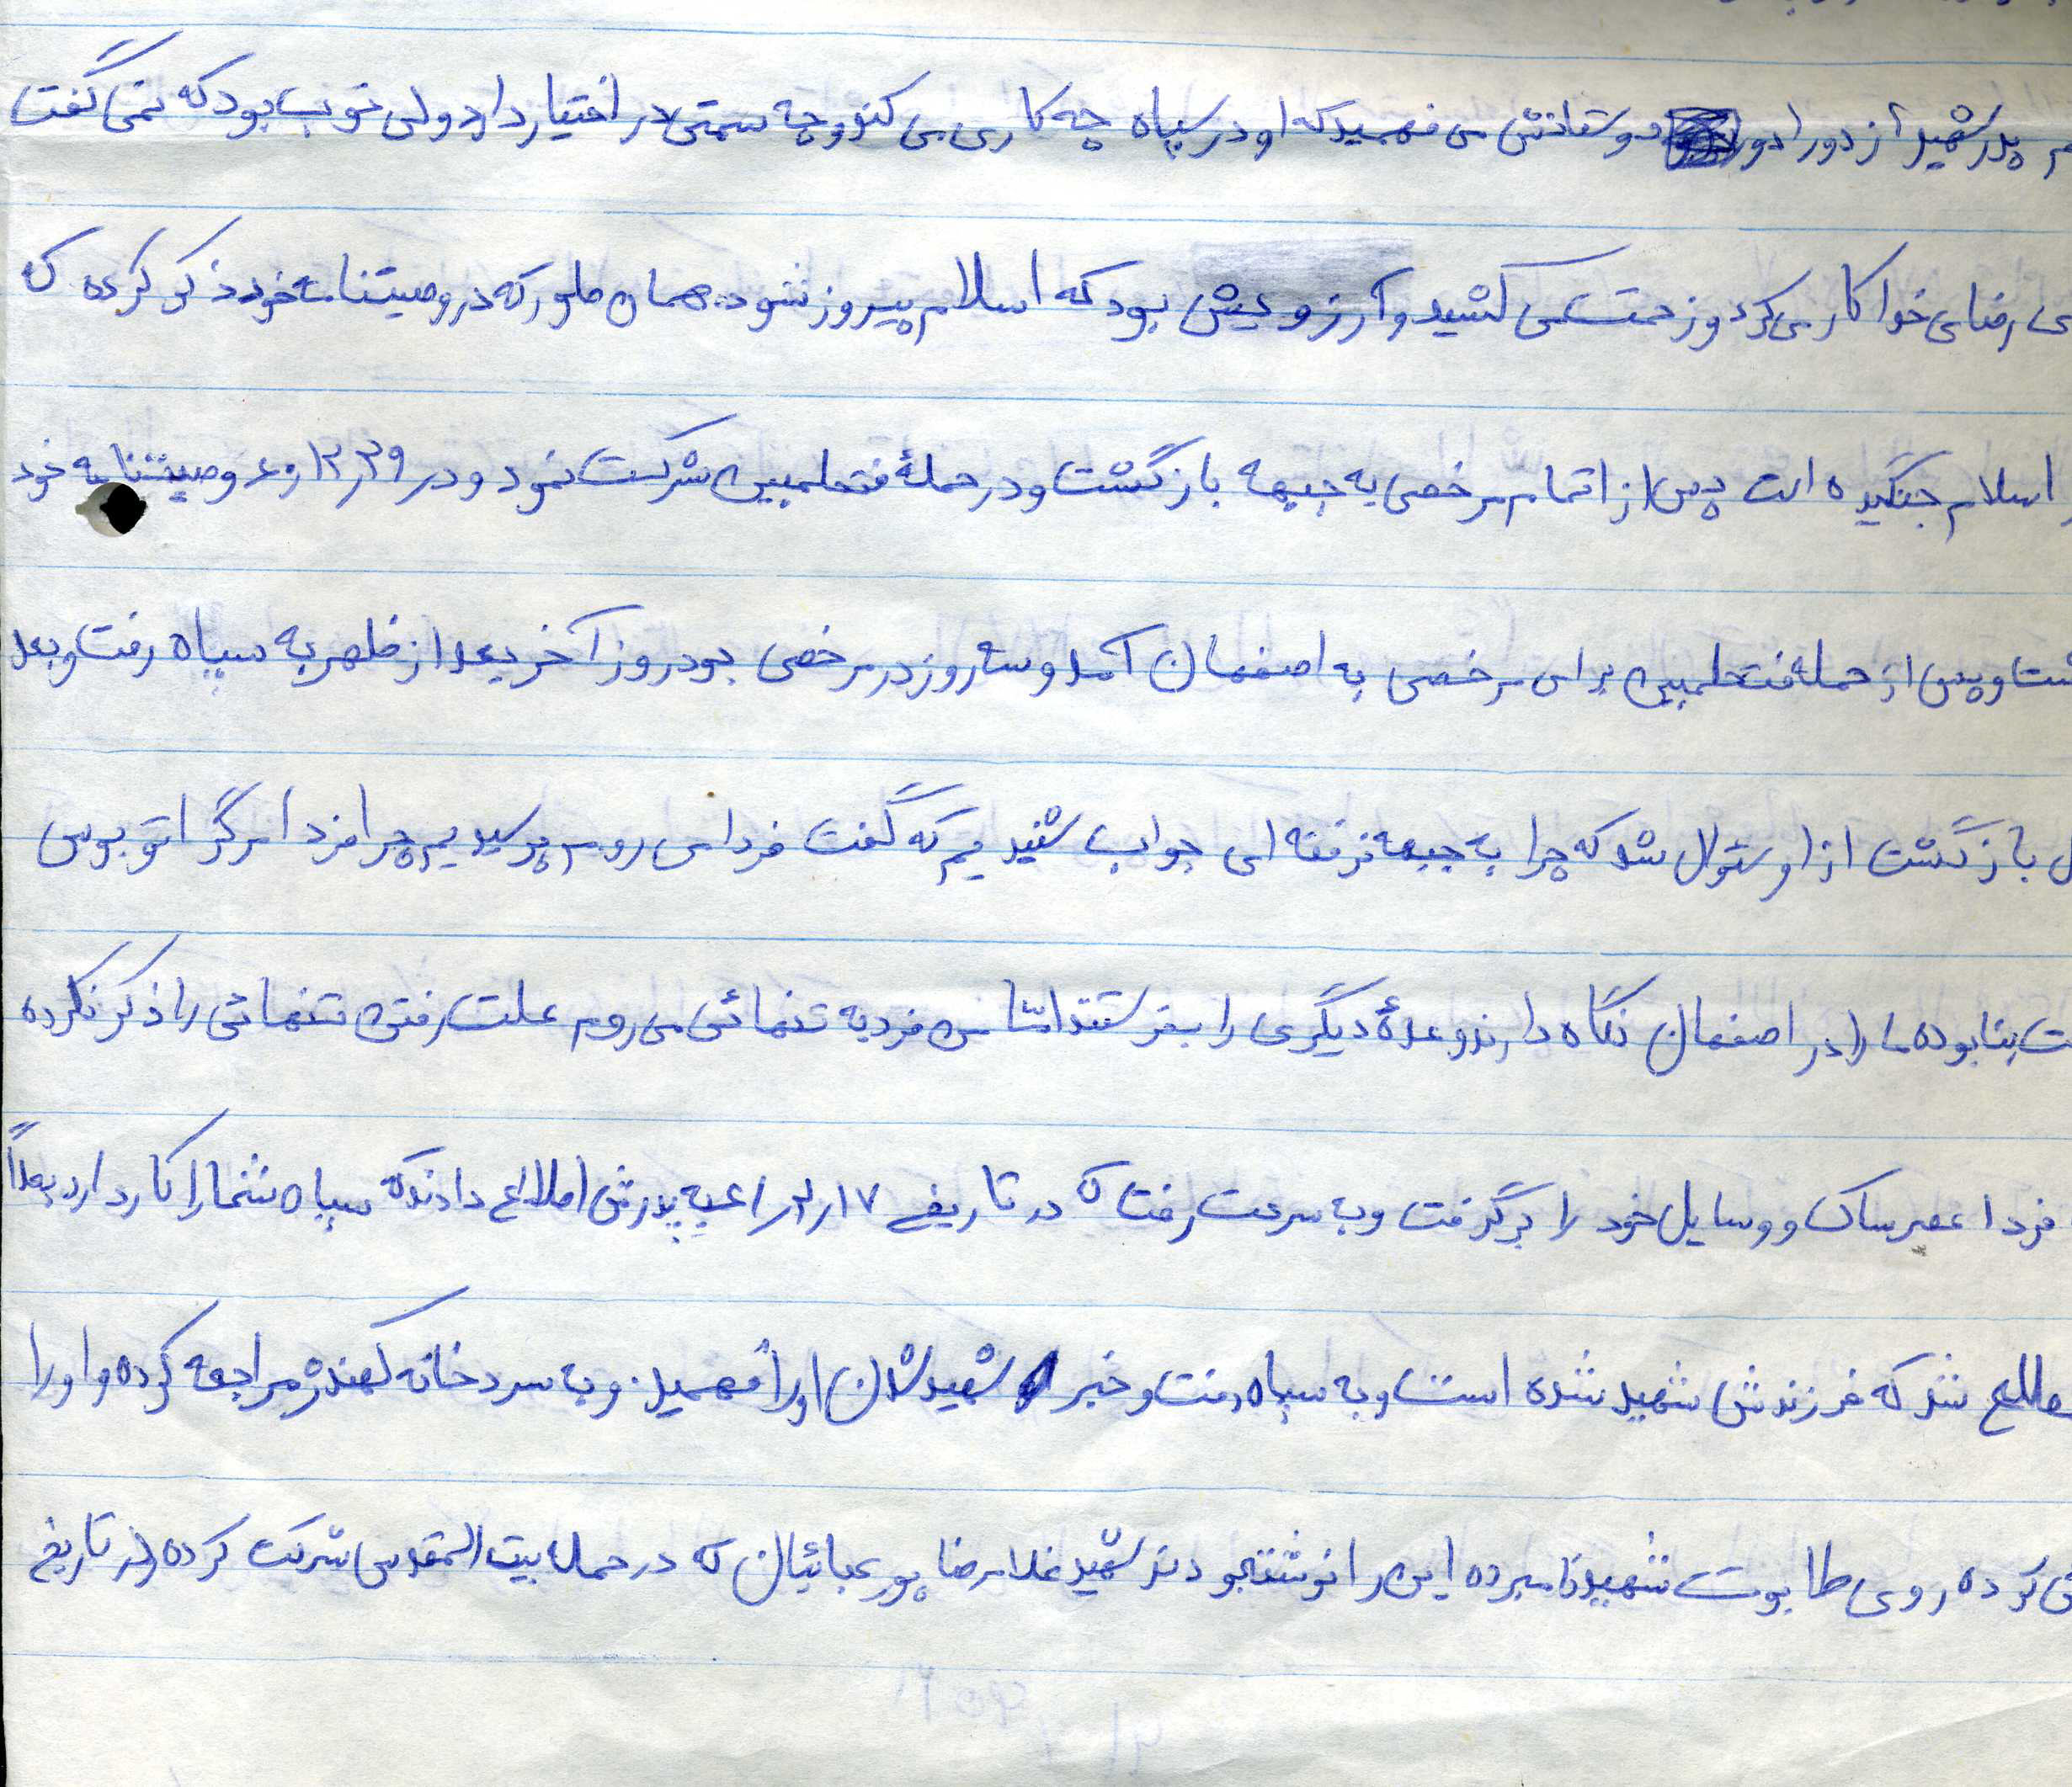 پدر شهید از دورادور دوستانش می فهمید که او در سپاه چه کاری می کند و چه سمتی در اختیار دارد ولی خوب بود که نمی گفت
رضای خدا کار می کرد و زحمت می کشید و آرزویش بود که اسلام پیروز شود. همان طور که در وصیتنامه خود ذکر کرده که
اسلام جنگیده است پس از اتمام مرخصی به جبهه بازگشت و در حملهٔ فتحلمبین شرکت نمود و در وصیتنامه خود
و پس از حمله فتحلمبین برای مرخصی به اصفهان آمد و سه روز در مرخصی بود روز آخر بعد از ظهر به سپاه رفت و بعد
بازگشت از او سئوال شد که چرا به جبهه نرفته ای جواب شنیدیم که گفت فردا می روم پرسیدیم چرا فردا مرگر اتوبوس
بنا بوده ما را در اصفهان نگاه دارند و عدهٔ دیگری را بفرستند اما من فردا به تنهائی می روم علت رفتن تنهائی را ذکر نکرده
فردا عصر ساک و وسایل خود را برگرفت و به سرعت رفت که در تاریخ به پدرش اطلاع دادند که سپاه شما را کار دارد بعداً
مطلع شد که فرزندش شهید شده است و به سپاه رفت و خبر شهید شدن او را فهمید. و به سردخانه کهندژ مراجعه کرده و او را
کرده روی طابوت شهید نامبرده این را نوشته بودند شهید غلامرضا پورعبائیان که در حمله بیت المقدس شرکت کرده در تاریخ